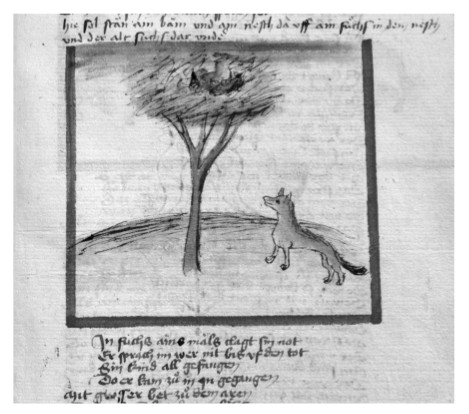 hie sol stän ain bäm und ain nescht da vff ain fuchs in dem nest
vnd der alt fuchs dar vnder
In fuchs ains mals clagt sin not
Er sprach im wer nit bis vf den tot
Sin kind all gefangen
Do er kam zů in gegangen
Mit grosser bet zů dem aren